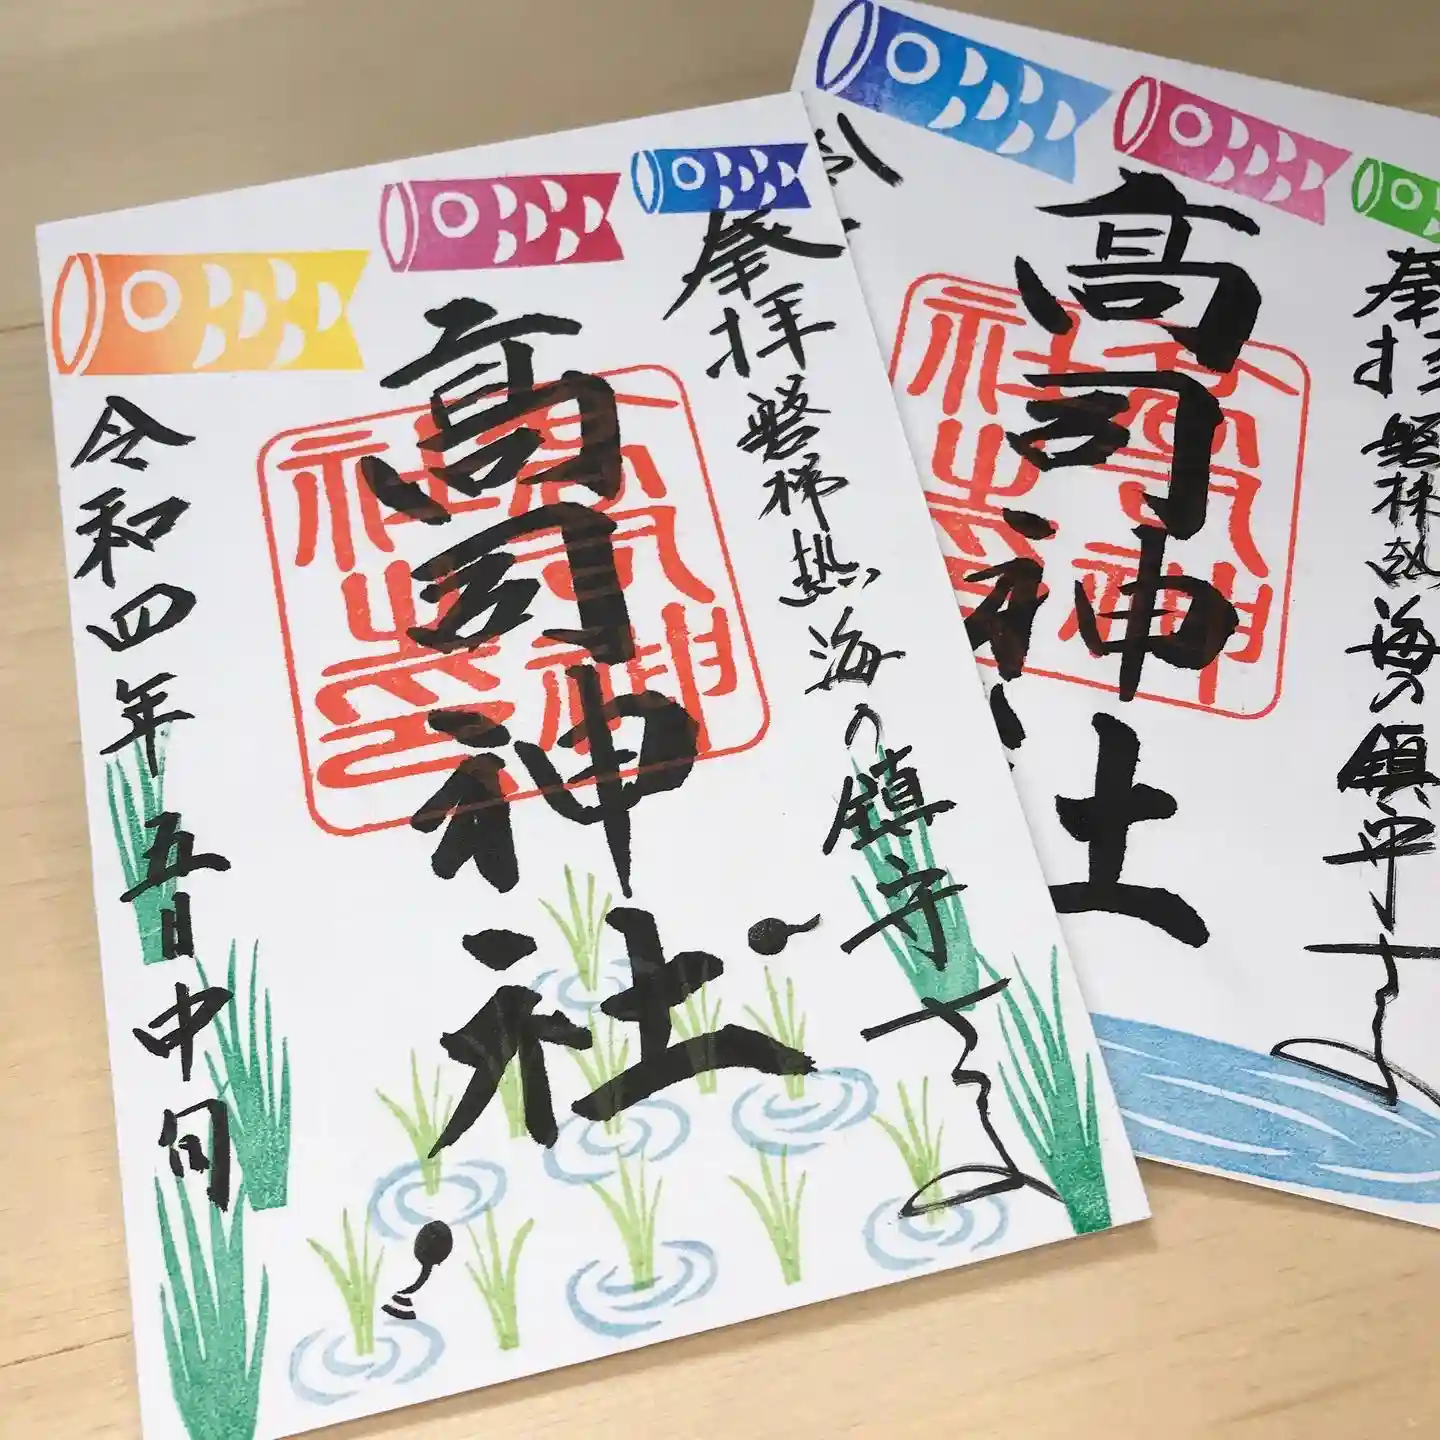 奉拝 磐梯熱海の鎮守さま
高司神社
令和四年 五月中旬
高司神社之印
奉拝 磐梯熱海の鎮守さま
高司神社
高司神社之印